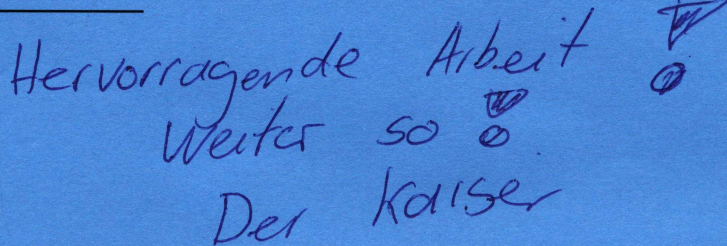 Hervorragende Arbeit!
Weiter so!
Der Kaiser